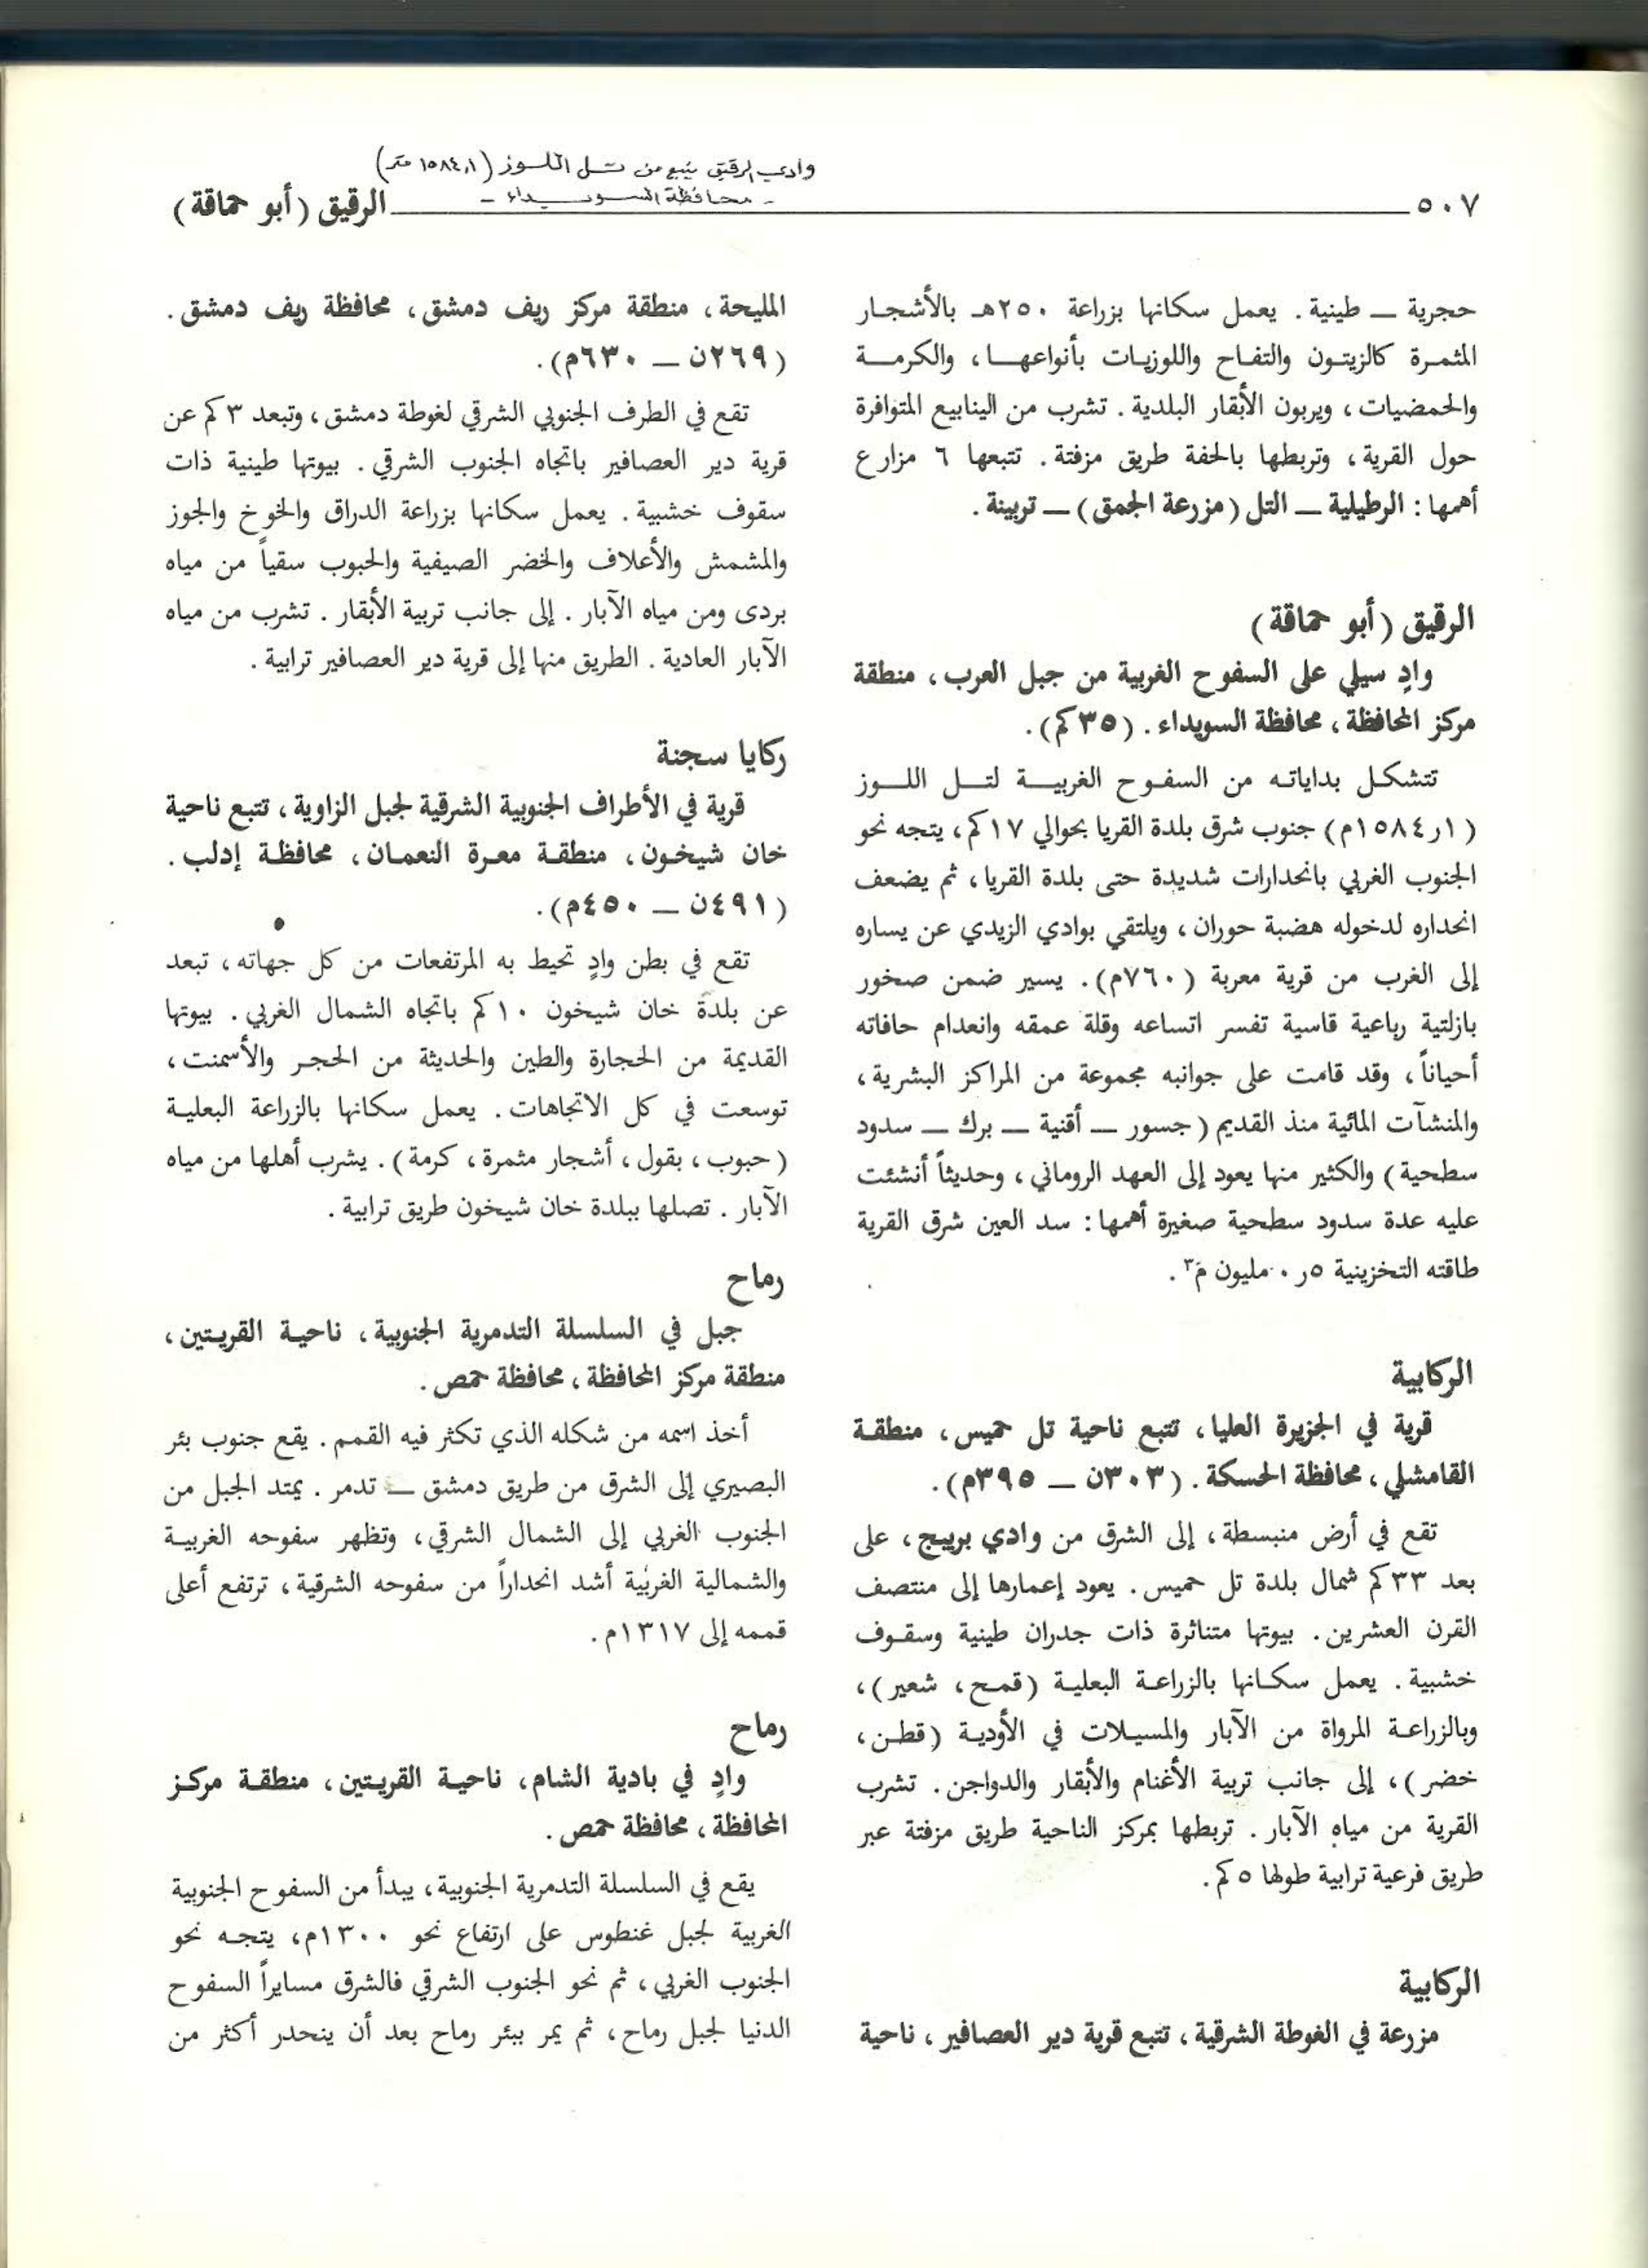 وادي الرقيق ينبع من تل اللوز (١٥٨٤,١ متر)
- محافظة السويداء -
٥٠٧
الرقيق (أبو حماقة)
حجرية — طينية. يعمل سكانها بزراعة ٢٥٠هـ بالأشجار
المثمرة كالزيتون والتفاح واللوزيات بأنواعها، والكرمة
والحمضيات، ويربون الأبقار البلدية. تشرب من الينابيع المتوافرة
حول القرية، وتربطها بالحفة طريق مزفتة. تتبعها ٦ مزارع
أهمها: الرطيلية — التل (مزرعة الجمق) — تربينة.
الرقيق (أبو حماقة)
وادٍ سيلي على السفوح الغربية من جبل العرب، منطقة
مركز المحافظة، محافظة السويداء. (٣٥كم).
تتشكل بداياته من السفوح الغربية لتل اللوز
(١ر١٥٨٤م) جنوب شرق بلدة القريا بحوالي ١٧كم، يتجه نحو
الجنوب الغربي بانحدارات شديدة حتى بلدة القريا، ثم يضعف
انحداره لدخوله هضبة حوران، ويلتقي بوادي الزيدي عن يساره
إلى الغرب من قرية معربة (٧٦٠م). يسير ضمن صخور
بازلتية رباعية قاسية تفسر اتساعه وقلة عمقه وانعدام حافاته
أحياناً، وقد قامت على جوانبه مجموعة من المراكز البشرية،
والمنشآت المائية منذ القديم (جسور — أقنية — برك — سدود
سطحية) والكثير منها يعود إلى العهد الروماني، وحديثاً أنشئت
عليه عدة سدود سطحية صغيرة أهمها: سد العين شرق القرية
طاقته التخزينية ٥ر٠ مليون م٣.
الركابية
قرية في الجزيرة العليا، تتبع ناحية تل حميس، منطقة
القامشلي، محافظة الحسكة. (٣٠٣ن — ٣٩٥م).
تقع في أرض منبسطة، إلى الشرق من وادي بريبج، على
بعد ٣٣كم شمال بلدة تل حميس. يعود إعمارها إلى منتصف
القرن العشرين. بيوتها متناثرة ذات جدران طينية وسقوف
خشبية. يعمل سكانها بالزراعة البعلية (قمح، شعير)،
وبالزراعة المرواة من الآبار والمسيلات في الأودية (قطن،
خضر)، إلى جانب تربية الأغنام والأبقار والدواجن. تشرب
القرية من مياه الآبار. تربطها بمركز الناحية طريق مزفتة عبر
طريق فرعية ترابية طولها ٥كم.
الركابية
مزرعة في الغوطة الشرقية، تتبع قرية دير العصافير، ناحية
المليحة، منطقة مركز ريف دمشق، محافظة ريف دمشق.
(٢٦٩ن — ٦٣٠م).
تقع في الطرف الجنوبي الشرقي لغوطة دمشق، وتبعد ٣كم عن
قرية دير العصافير باتجاه الجنوب الشرقي. بيوتها طينية ذات
سقوف خشبية. يعمل سكانها بزراعة الدراق والخوخ والجوز
والمشمش والأعلاف والخضر الصيفية والحبوب سقياً من مياه
بردى ومن مياه الآبار. إلى جانب تربية الأبقار. تشرب من مياه
الآبار العادية. الطريق منها إلى قرية دير العصافير ترابية.
ركايا سجنة
قرية في الأطراف الجنوبية الشرقية لجبل الزاوية، تتبع ناحية
خان شيخون، منطقة معرة النعمان، محافظة إدلب.
(٤٩١ن — ٤٥٠م).
تقع في بطن وادٍ تحيط به المرتفعات من كل جهاته، تبعد
عن بلدة خان شيخون ١٠كم باتجاه الشمال الغربي. بيوتها
القديمة من الحجارة والطين والحديثة من الحجر والأسمنت،
توسعت في كل الاتجاهات. يعمل سكانها بالزراعة البعلية
(حبوب، بقول، أشجار مثمرة، كرمة). يشرب أهلها من مياه
الآبار. تصلها ببلدة خان شيخون طريق ترابية.
رماح
جبل في السلسلة التدمرية الجنوبية، ناحية القريتين،
منطقة مركز المحافظة، محافظة حمص.
أخذ اسمه من شكله الذي تكثر فيه القمم. يقع جنوب بئر
البصيري إلى الشرق من طريق دمشق — تدمر. يمتد الجبل من
الجنوب الغربي إلى الشمال الشرقي، وتظهر سفوحه الغربية
والشمالية الغربية أشد انحداراً من سفوحه الشرقية، ترتفع أعلى
قممه إلى ١٣١٧م.
رماح
وادٍ في بادية الشام، ناحية القريتين، منطقة مركز
المحافظة، محافظة حمص.
يقع في السلسلة التدمرية الجنوبية، يبدأ من السفوح الجنوبية
الغربية لجبل غنطوس على ارتفاع نحو ١٣٠٠م، يتجه نحو
الجنوب الغربي، ثم نحو الجنوب الشرقي فالشرق مسايراً السفوح
الدنيا لجبل رماح، ثم يمر ببئر رماح بعد أن ينحدر أكثر من